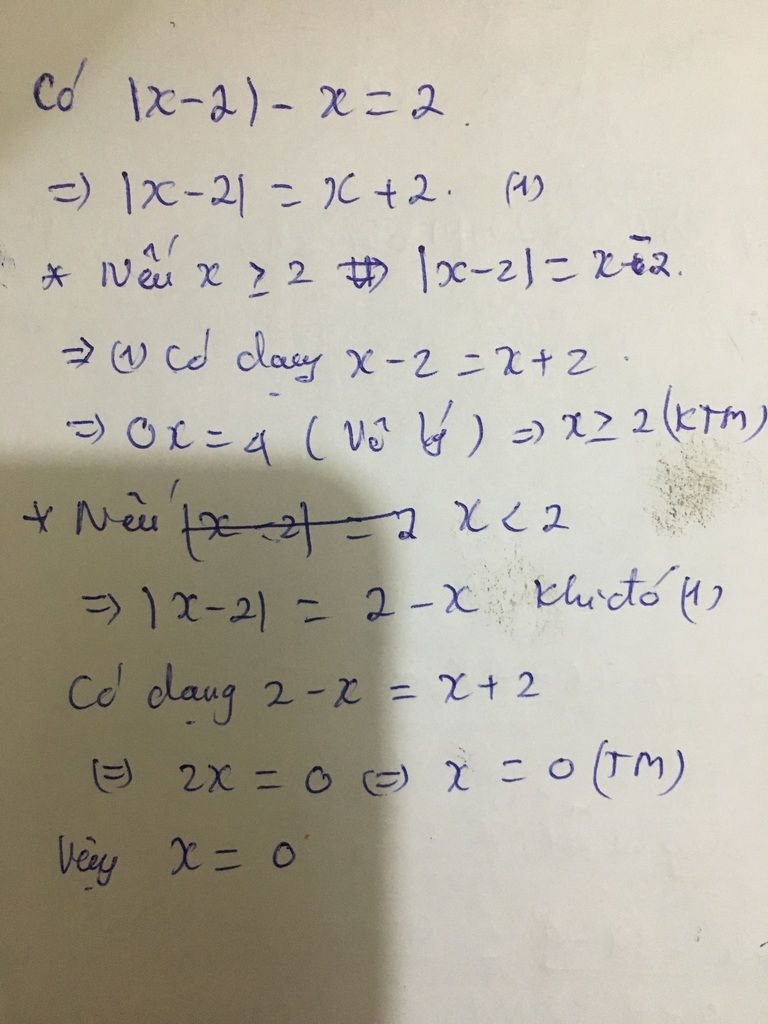 Có |x-2| - x = 2.
=> |x-2| = x + 2. (1)
* Nếu x ≥ 2 => |x-2| = x-2.
=> (1) Có dạng x-2 = x+2.
=> 0x = 4 (Vô lý) => x ≥ 2 (KTM)
* Nếu |x-2| = 2 x < 2
=> |x-2| = 2-x Khi đó (1)
Có dạng 2-x = x+2
(=) 2x = 0 (=) x = 0 (TM)
Vậy x = 0